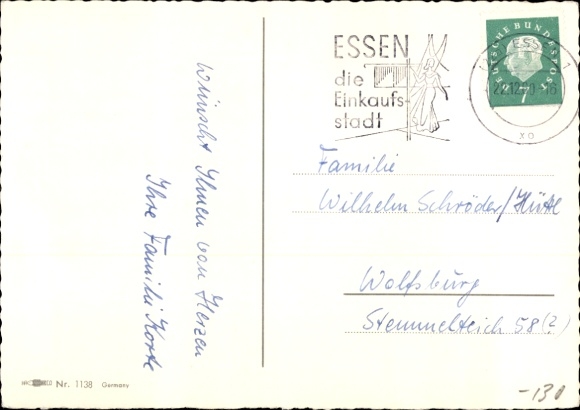 Wünscht Ihnen von Herzen
Ihre Familie Korte
ESSEN
die
Einkaufs-
stadt
DEUTSCHE BUNDESPOST
7
ESSEN 1
22.12.60-16
xo
Familie
Wilhelm Schröder/Hüttl
Wolfsburg
Stemmelteich 58(?)
Nr. 1138 Germany
-130